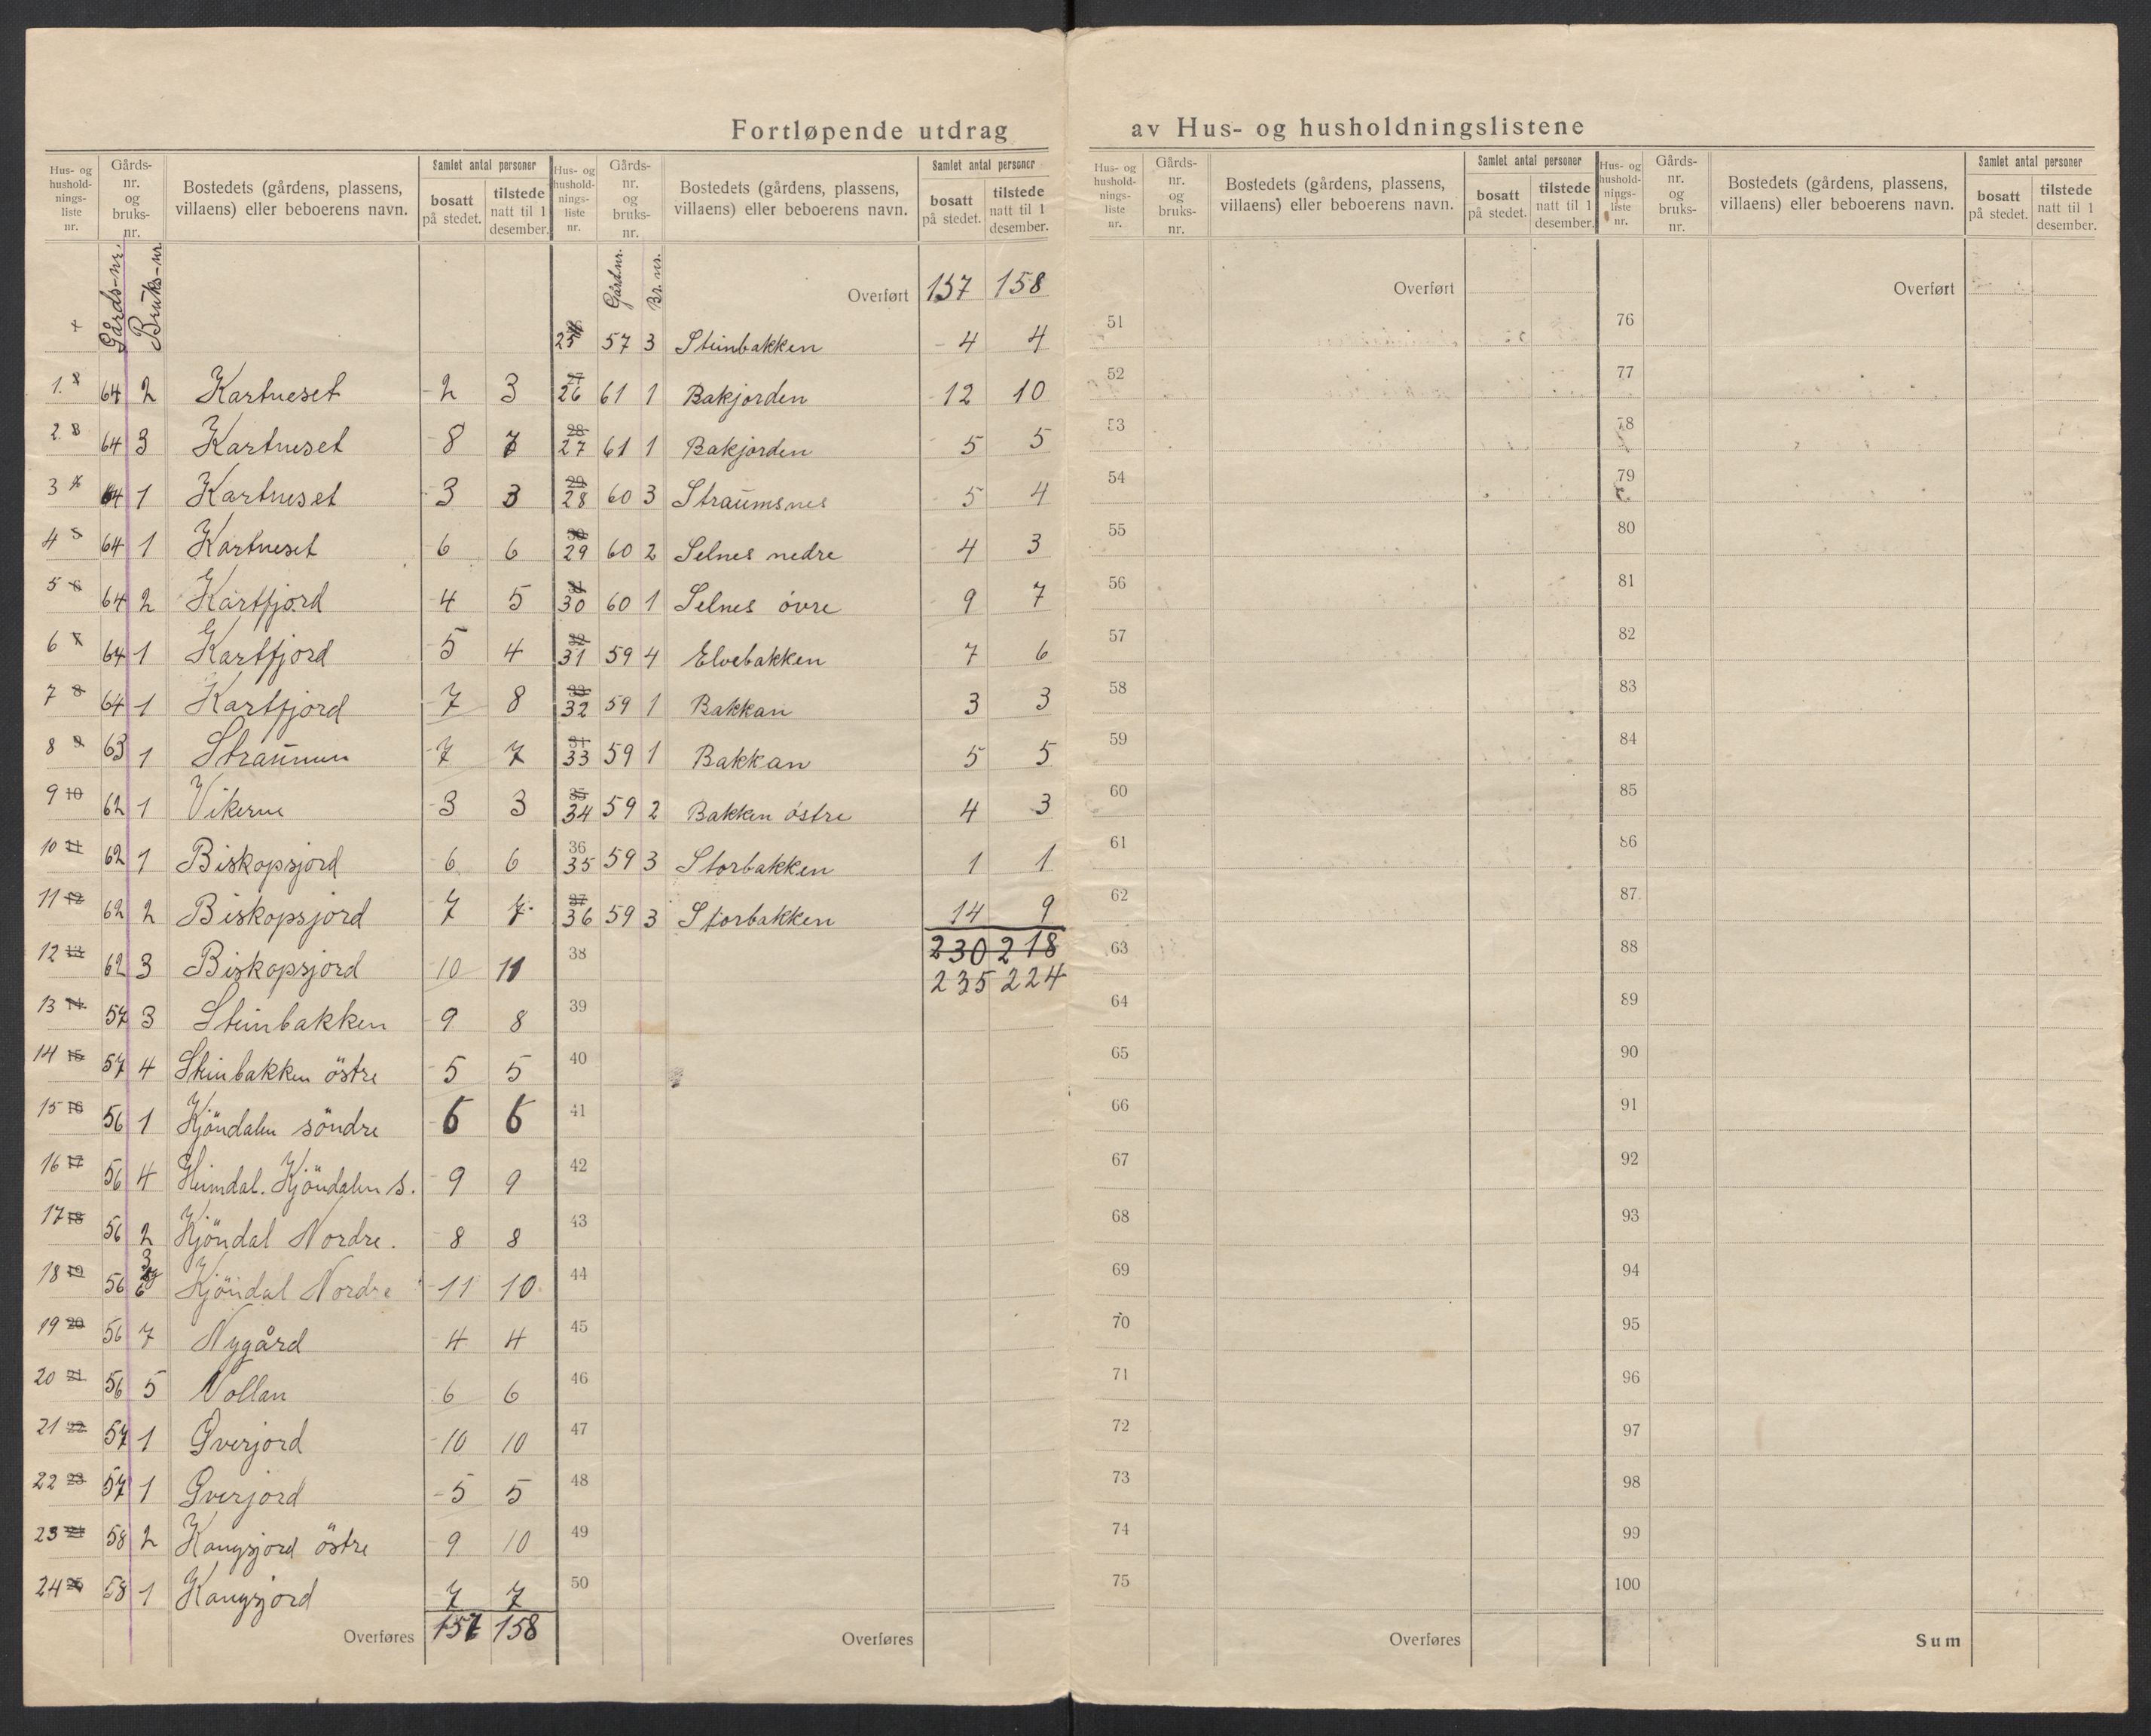 Fortløpende utdrag av Hus- og husholdningslistene
Hus- og husholdningsliste nr. | Gårds-nr. og bruks-nr. | Bostedets (gårdens, plassens, villaens) eller beboerens navn. | Samlet antal personer | bosatt på stedet. | tilstede natt til 1 desember.
Gårds-nr. Bruks-nr
1. 64 2 Kartneset 2 3
2 64 3 Kartneset 8 7
3 64 1 Kartneset 3 3
4 64 1 Kartneset 6 6
5 6 64 2 Kartfjord 4 5
6 7 64 1 Kartfjord 5 4
7 8 64 1 Kartfjord 7 8
8 9 63 1 Straumen 7 7
9 10 62 1 Vikerne 3 3
10 11 62 1 Biskopsjord 6 6
11 12 62 2 Biskopsjord 7 7
12 13 62 3 Biskopsjord 10 11
13 14 57 3 Steinbakken 9 8
14 15 57 4 Steinbakken östre 5 5
15 16 56 1 Kjöndalen söndre 6 6
16 17 56 4 Heimdal. Kjöndalen s. 9 9
17 18 56 2 Kjöndal Nordre. 8 8
18 19 56 3 6 Kjöndal Nordre 11 10
19 20 56 7 Nygård 4 4
20 21 56 5 Vollan 6 6
21 22 57 1 Överjord 10 10
22 23 57 1 Överjord 5 5
23 24 58 2 Kangsjord östre 9 10
24 25 58 1 Kangsjord 7 7
Overføres 157 158
Hus- og husholdningsliste nr. | Gårds-nr. og bruks-nr. | Bostedets (gårdens, plassens, villaens) eller beboerens navn. | Samlet antal personer | bosatt på stedet. | tilstede natt til 1 desember.
Gårdsnr. Br. nr.
Overført 157 158
25 57 3 Steinbakken 4 4
27 26 61 1 Bakjorden 12 10
28 27 61 1 Bakjorden 5 5
29 28 60 3 Straumsnes 5 4
30 29 60 2 Selnes nedre 4 3
31 30 60 1 Selnes övre 9 7
32 31 59 4 Elvebakken 7 6
33 32 59 1 Bakkan 3 3
34 33 59 1 Bakkan 5 5
35 34 59 2 Bakken östre 4 3
36 35 59 3 Storbakken 1 1
37 36 59 3 Storbakken 14 9
38 230 218
235 224
39
40
41
42
43
44
45
46
47
48
49
50
Overføres
Hus- og husholdningsliste nr. | Gårds-nr. og bruks-nr. | Bostedets (gårdens, plassens, villaens) eller beboerens navn. | Samlet antal personer | bosatt på stedet. | tilstede natt til 1 desember.
Overført
51
52
53
54
55
56
57
58
59
60
61
62
63
64
65
66
67
68
69
70
71
72
73
74
75
Overføres
Hus- og husholdningsliste nr. | Gårds-nr. og bruks-nr. | Bostedets (gårdens, plassens, villaens) eller beboerens navn. | Samlet antal personer | bosatt på stedet. | tilstede natt til 1 desember.
Overført
76
77
78
79
80
81
82
83
84
85
86
87
88
89
90
91
92
93
94
95
96
97
98
99
100
Sum